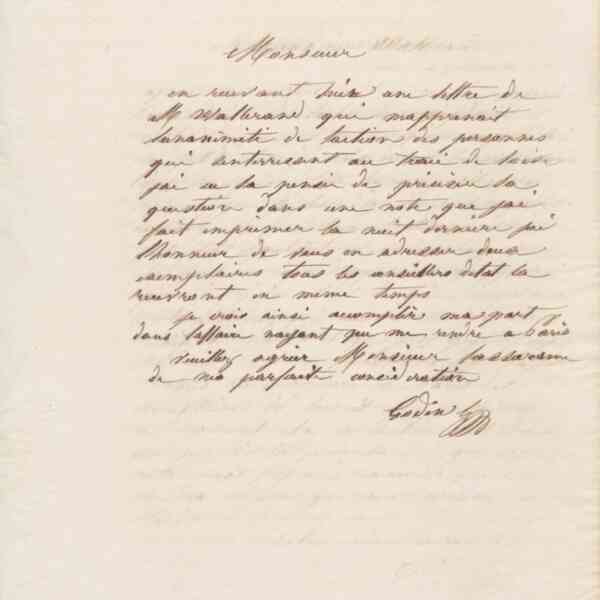 Monsieur
en recevant hier une lettre de
M Walbrand qui mapprenait
lunanimité de laction des personnes
qui sinterressent au tracé de loise
jai eu la pensée de préciser la
question dans une note que jai
fait imprimer la nuit dernière jai
lhonneur de vous en adresser deux
exemplaires tous les conseillers detat la
recevront en meme temps
je crois ainsi accomplir ma part
dans laffaire nayant pu me rendre a Paris
Veuillez agréer Monsieur lassurance
de ma parfaite considération
Godin